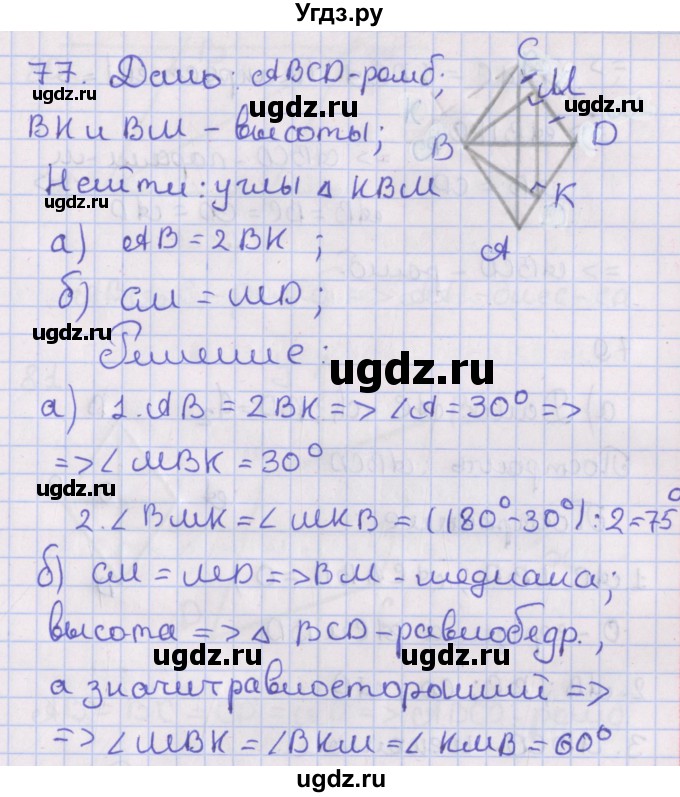 Угдз.ру
77. Дано: ABCD-ромб;
ВК и ВМ - высоты;
Найти: углы △ KBM
а) AB = 2BK ;
б) CM = MD;
Решение:
а) 1. AB = 2BK => ∠A = 30° =>
=> ∠ MBK = 30°
2. ∠ BMK = ∠ MKB = (180° - 30°) : 2 = 75°
б) CM = MD => BM - медиана;
высота => △ BCD - равнобедр.,
а значит равносторонний =>
=> ∠ MBK = ∠ BKM = ∠ KMB = 60°
C
M
B
D
K
A
ugdz.ru
ugdz.ru
ugdz.ru
ugdz.ru
ugdz.ru
ugdz.ru
ugdz.ru
ugdz.ru
ugdz.ru
ugdz.ru
ugdz.ru
ugdz.ru
ugdz.ru
ugdz.ru